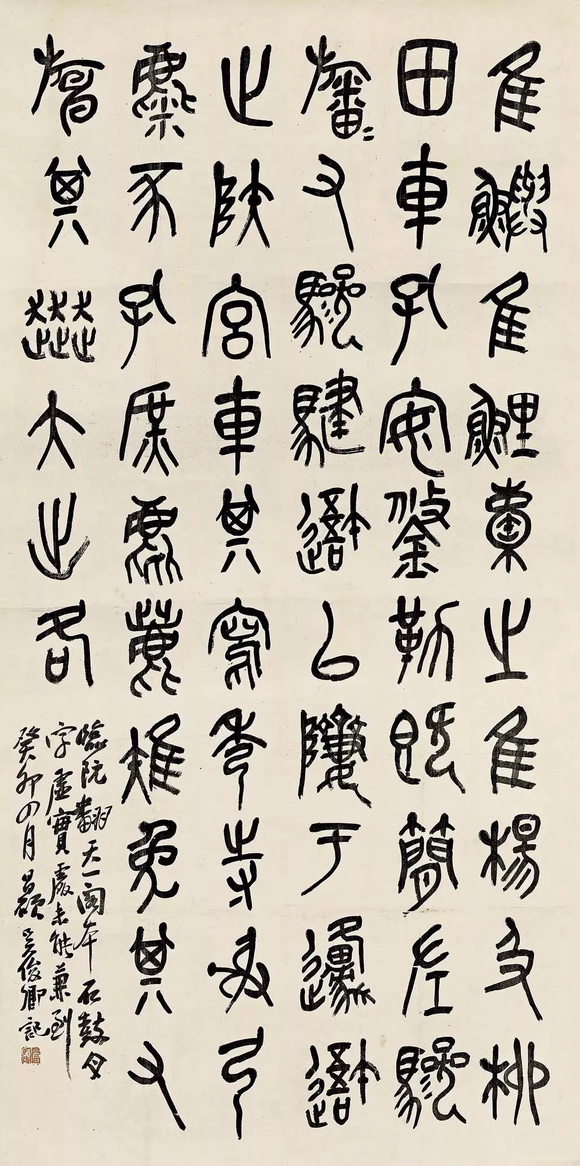 隹鱮隹鯉橐之隹楊及柳
田車孔安鋚勒既簡左驂
旛〻又驂騝避以隮于邍避
止陜宮車其寫秀寺射弓
麋豕孔庶麀鹿雉兔其又
旃其奔大出各
臨阮翻天一閣本石鼓文
字虛實處未能兼到
癸卯四月昌碩吳俊卿記